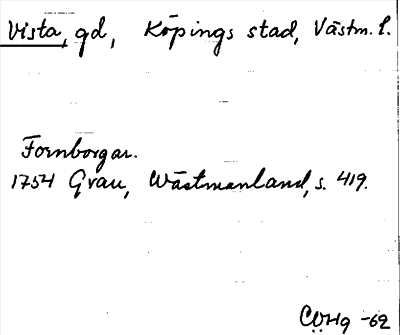 Vista, gd, Köpings stad, Västm. l.
Fornborgar.
1754 Grau, Wästmanland, s. 419.
CWHg -62